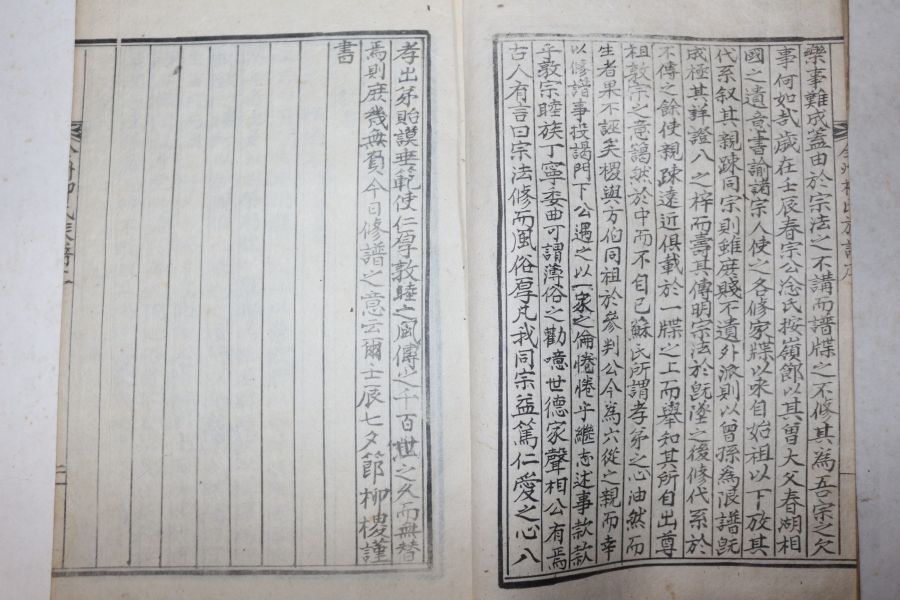 樂事難成盖由於宗法之不講而譜牒之不修其為吾宗之欠
事何如哉歲在壬辰春宗公淰氏按嶺節以其曾大父春湖相
國之遺意書諭諸宗人使之各修家牒以來自始祖以下放其
代系叙其親疎同宗則雖庶賤不遺外派則以曾孫為限譜旣
成極其詳證入之梓而壽其傳明宗法於旣墜之後修代系於
不傳之餘使親疎遠近俱載於一牒之上而舉知其所自出尊
祖敦宗之意藹然於中而不自已蘇氏所謂孝弟之心油然而
生者果不誣矣㮨與方伯同祖於參判公今為六從之親而幸
以修譜事投謁門下公遇之以一家之倫惓惓乎繼志述事款款
乎敦宗睦族丁寧委曲可謂薄俗之勸噫世德家聲相公有焉
古人有言曰宗法修而風俗厚凡我同宗益篤仁愛之心入
孝出弟貽謨垂範使仁厚敦睦之風傳之千百世之久而無替
焉則庶幾無負今日修譜之意云爾壬辰七夕節柳㮨謹
書